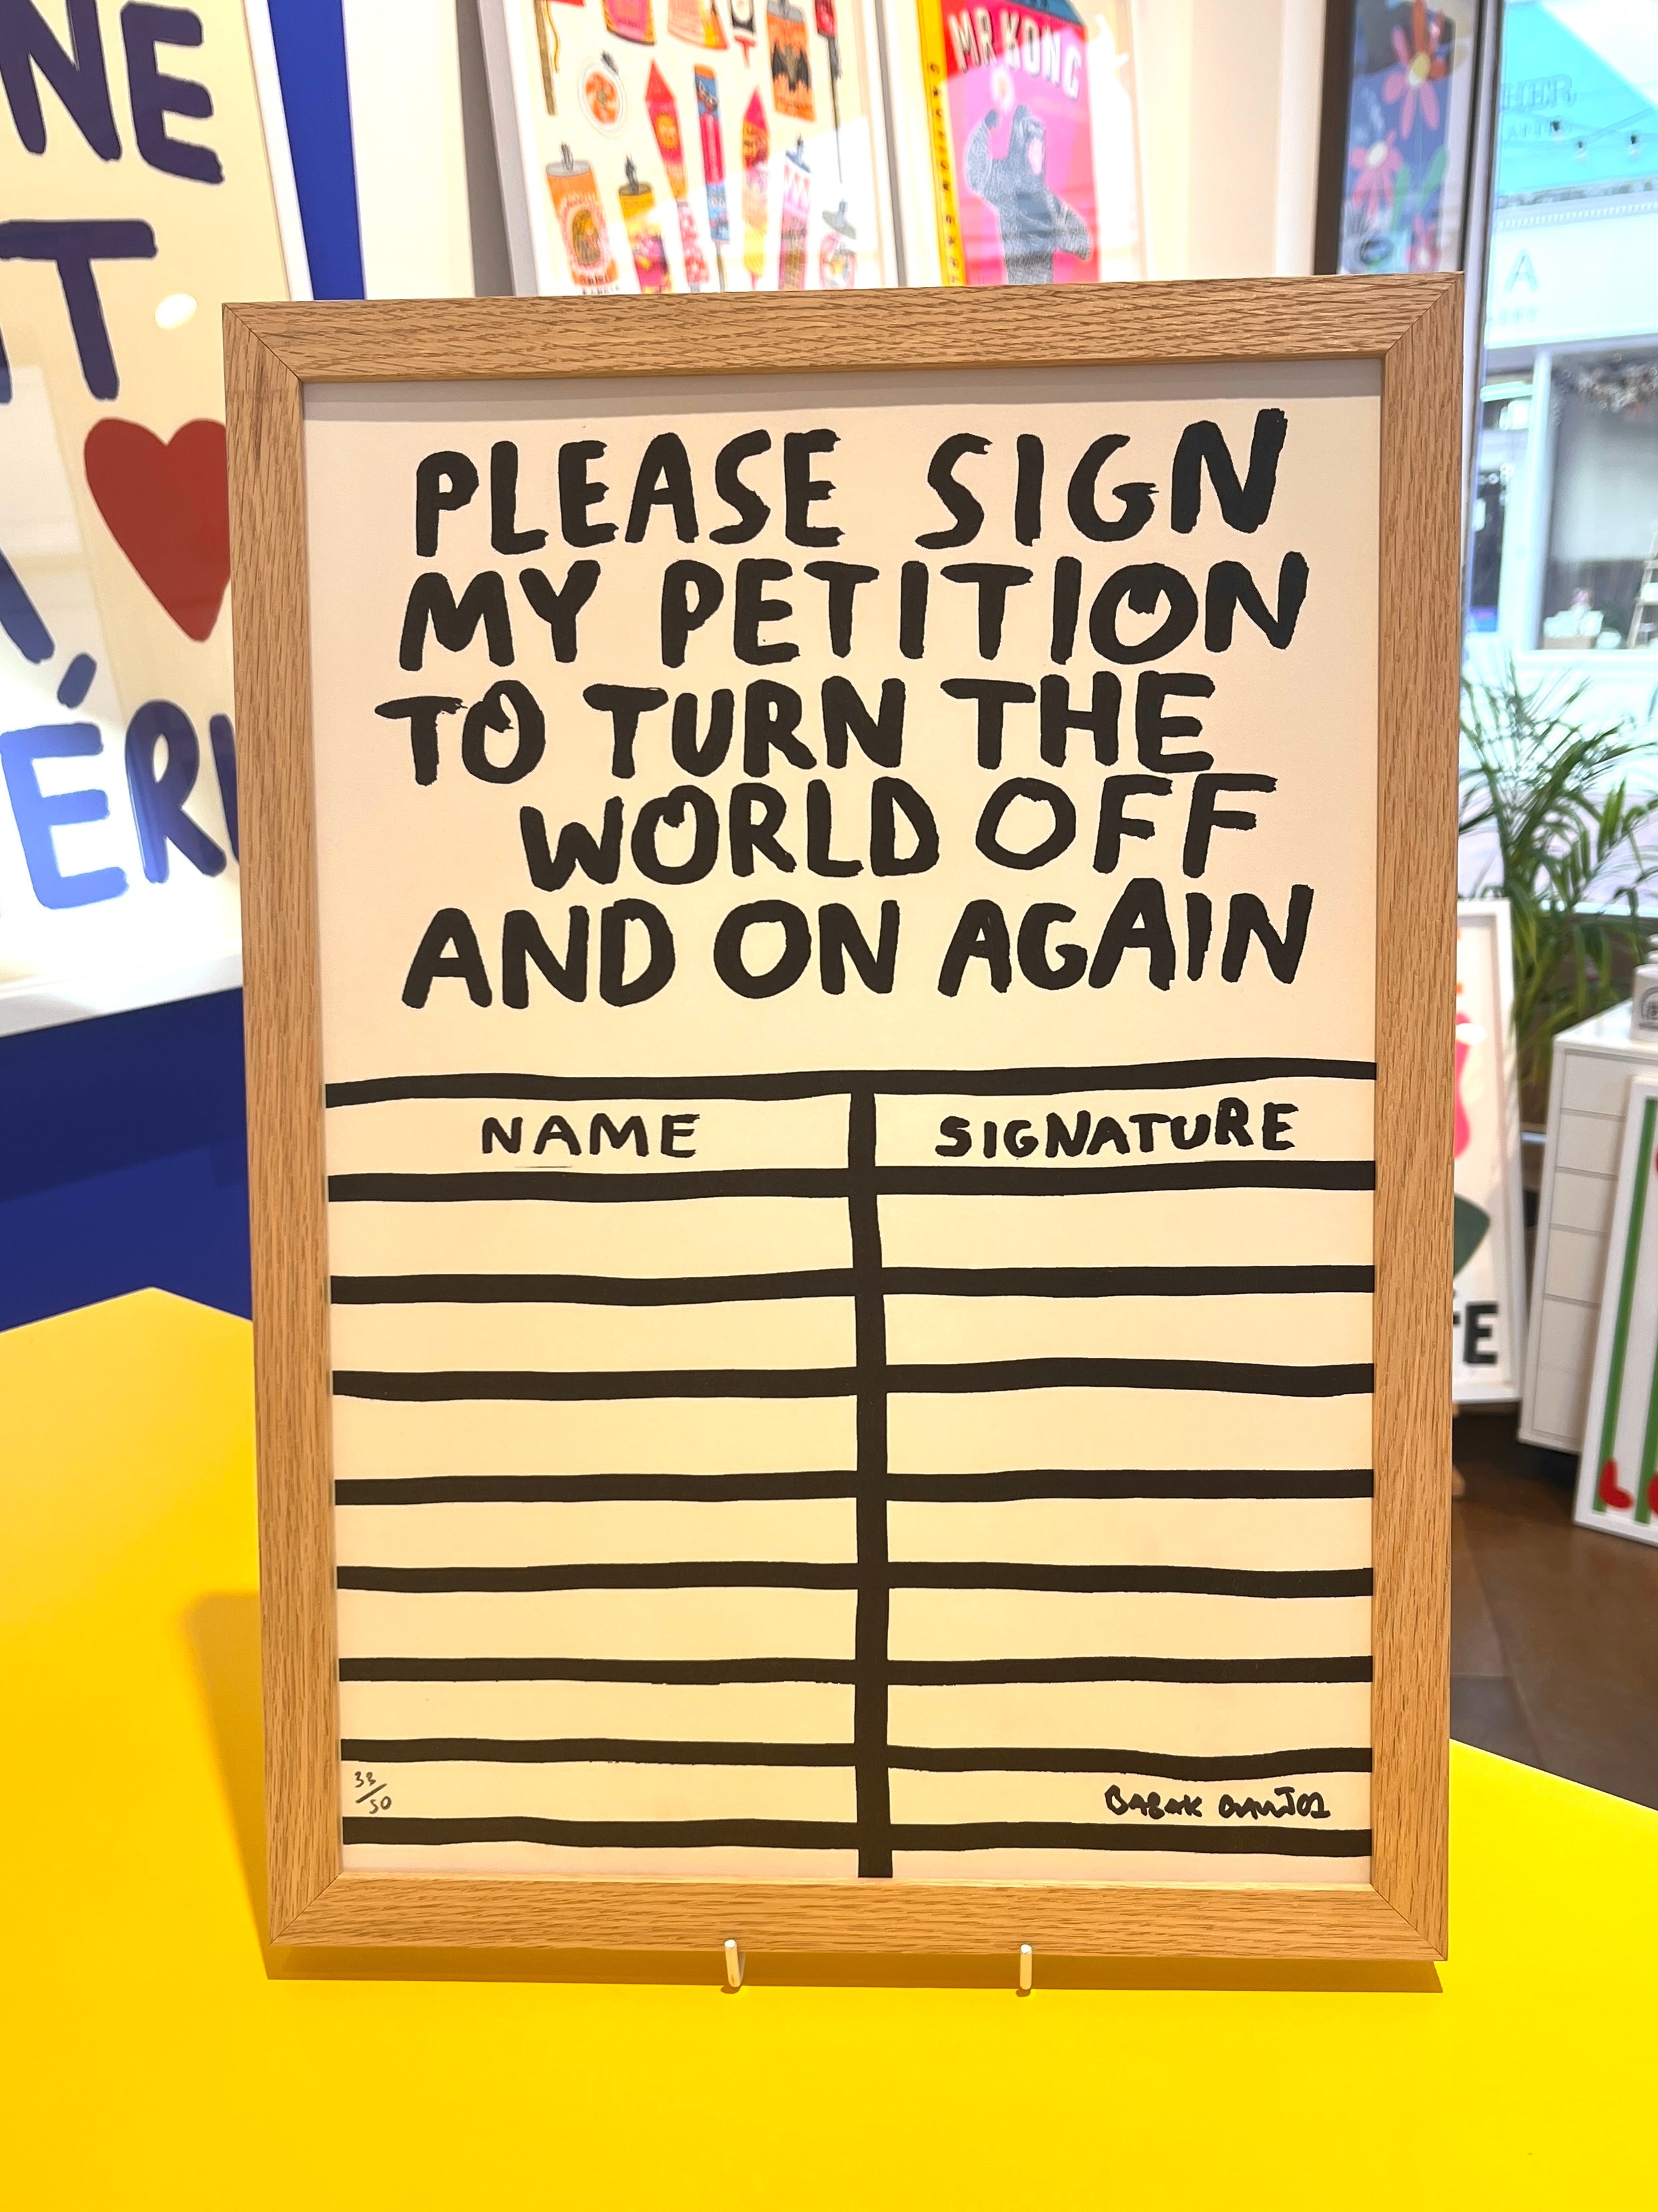 NE
T
ÉRI
MR KONG
PLEASE SIGN
MY PETITION
TO TURN THE
WORLD OFF
AND ON AGAIN
NAME
SIGNATURE
33/50
BABAK GANJEI